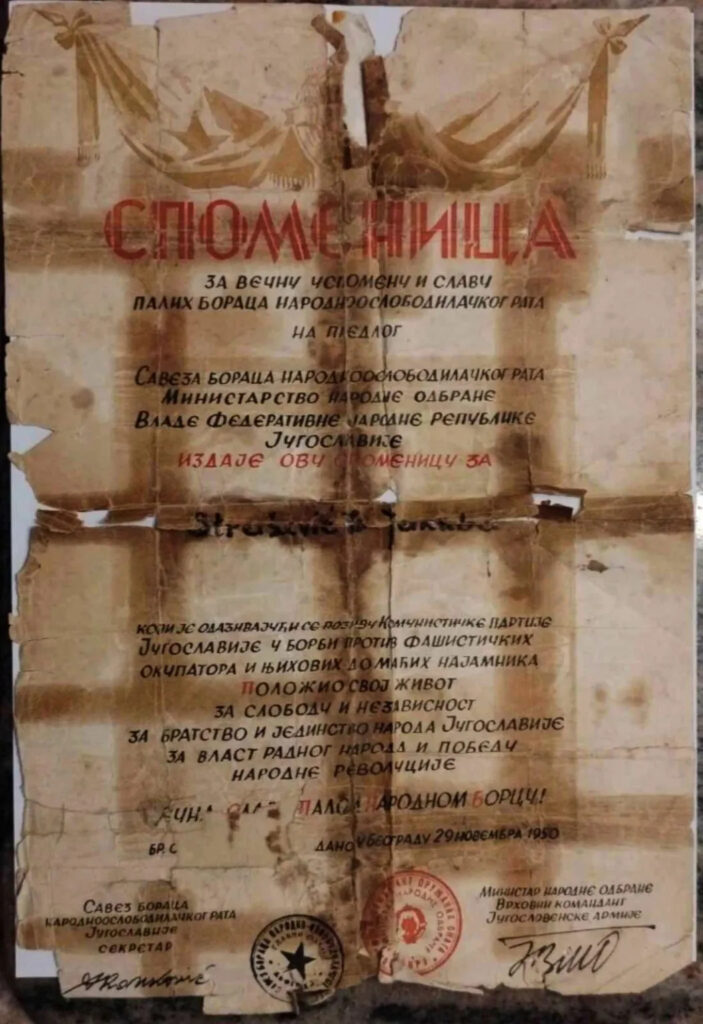 СПОМЕНИЦА
ЗА ВЕЧНУ УСПОМЕНУ И СЛАВУ
ПАЛИХ БОРАЦА НАРОДНООСЛОБОДИЛАЧКОГ РАТА
НА ПРЕДЛОГ
САВЕЗА БОРАЦА НАРОДНООСЛОБОДИЛАЧКОГ РАТА
МИНИСТАРСТВО НАРОДНЕ ОДБРАНЕ
ВЛАДЕ ФЕДЕРАТИВНЕ НАРОДНЕ РЕПУБЛИКЕ
ЈУГОСЛАВИЈЕ
ИЗДАЈЕ ОВУ СПОМЕНИЦУ ЗА
КОЈИ ЈЕ ОДАЗИВАЈУЋИ СЕ ПОЗИВУ КОМУНИСТИЧКЕ ПАРТИЈЕ
ЈУГОСЛАВИЈЕ У БОРБИ ПРОТИВ ФАШИСТИЧКИХ
ОКУПАТОРА И ЊИХОВИХ ДОМАЋИХ НАЈАМНИКА
ПОЛОЖИО СВОЈ ЖИВОТ
ЗА СЛОБОДУ И НЕЗАВИСНОСТ
ЗА БРАТСТВО И ЈЕДИНСТВО НАРОДА ЈУГОСЛАВИЈЕ
ЗА ВЛАСТ РАДНОГ НАРОДА И ПОБЕДУ
НАРОДНЕ РЕВОЛУЦИЈЕ
ПАЛОМ НАРОДНОМ БОРЦУ!
БР. ДАНО У БЕОГРАДУ 29 НОВЕМБРА 1950
САВЕЗ БОРАЦА
НАРОДНООСЛОБОДИЛАЧКОГ РАТА
ЈУГОСЛАВИЈЕ
СЕКРЕТАР
МИНИСТАР НАРОДНЕ ОДБРАНЕ
ВРХОВНИ КОМАНДАНТ
ЈУГОСЛОВЕНСКЕ АРМИЈЕ